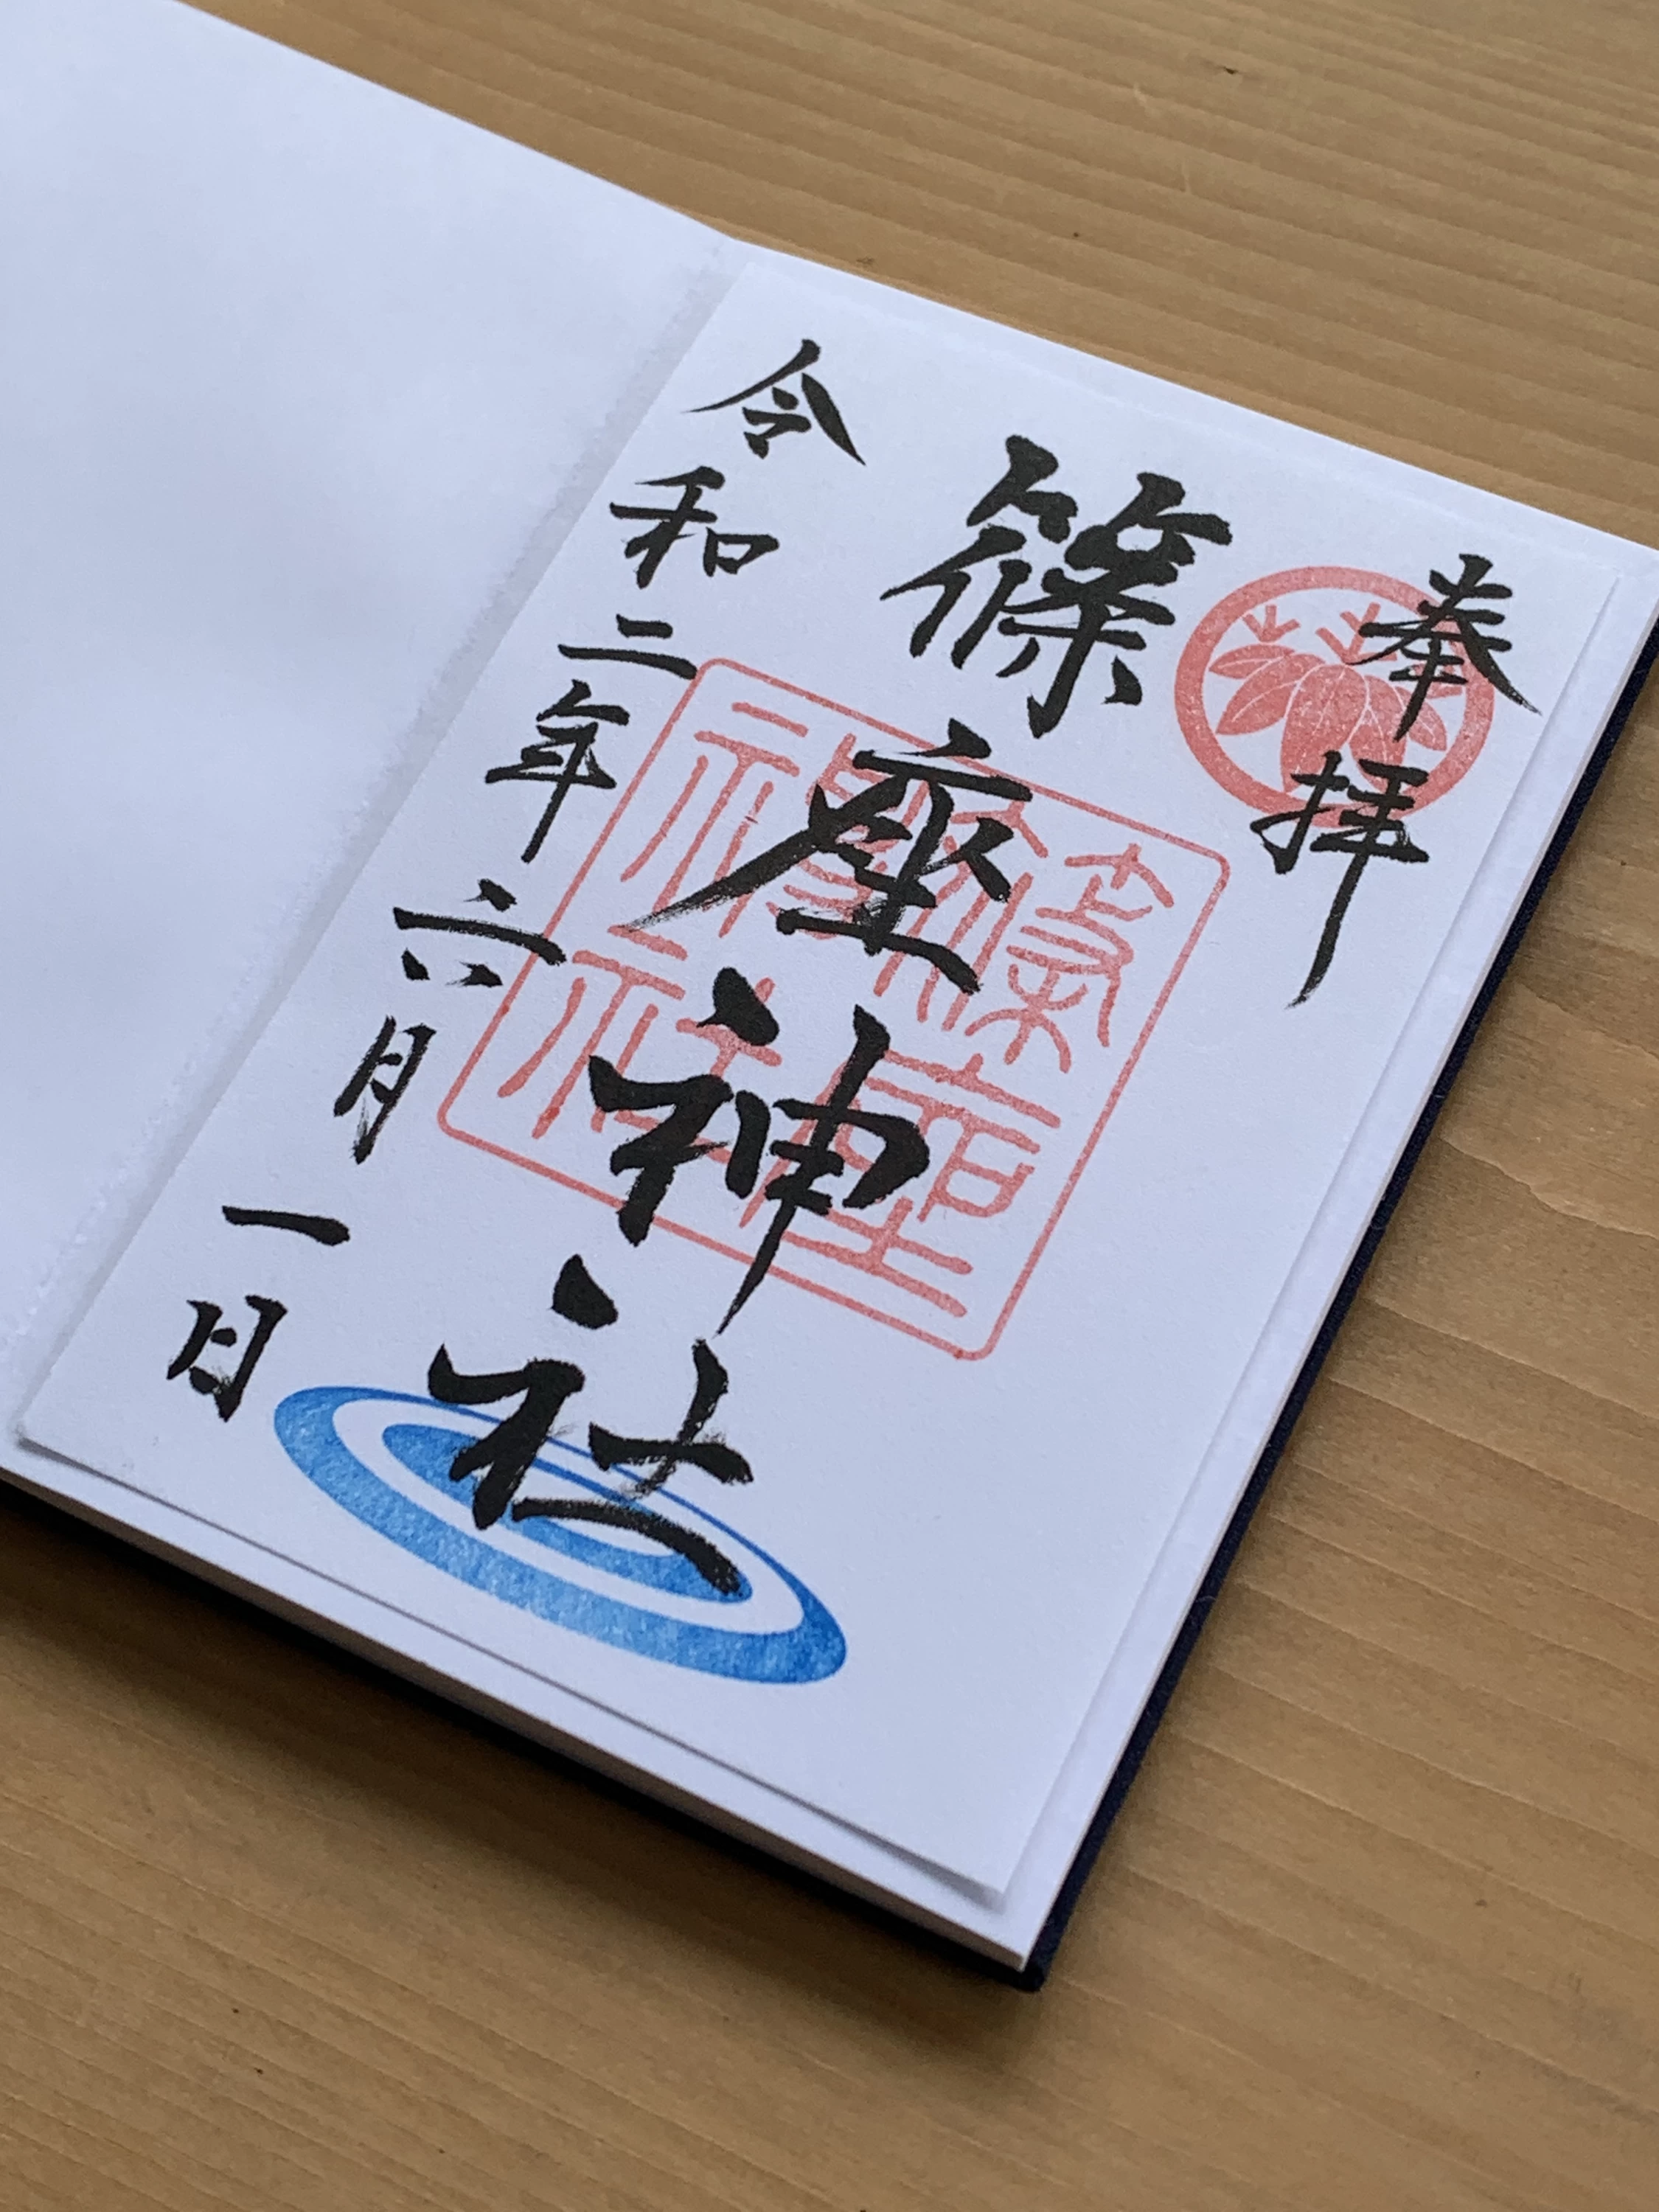 奉拝
篠座神社
篠座
神社
令和二年六月一日